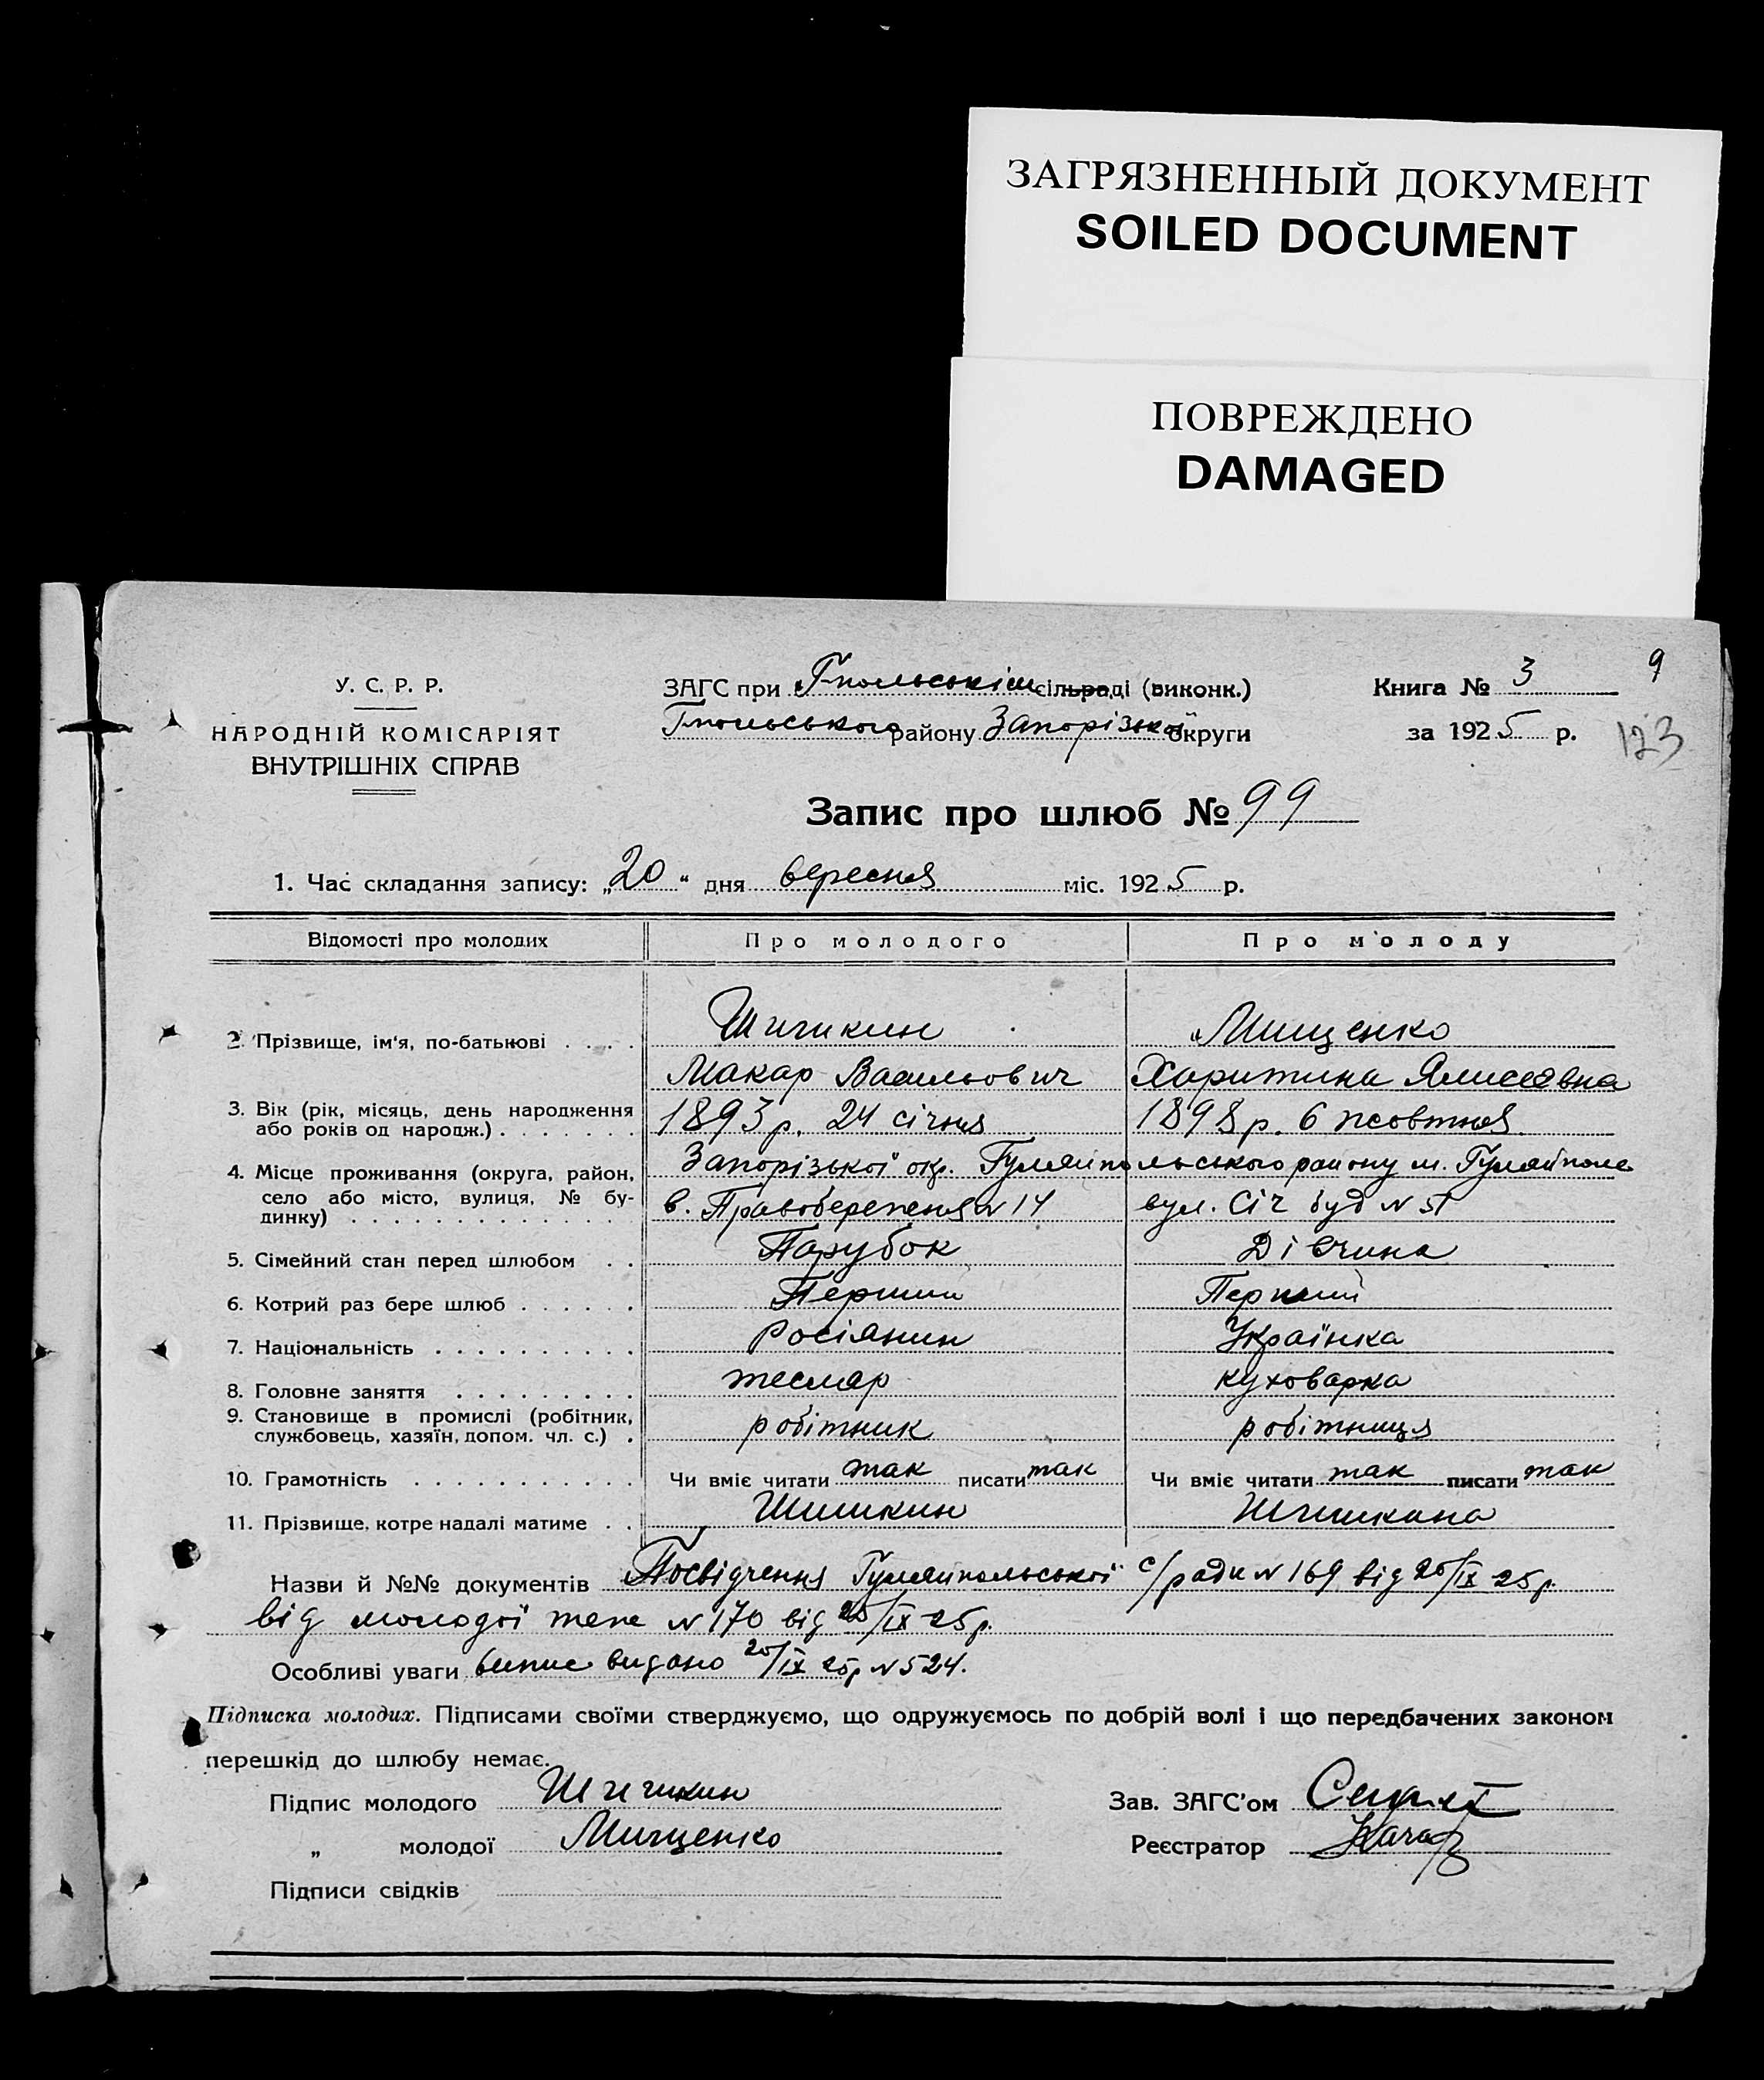 ЗАГРЯЗНЕННЫЙ ДОКУМЕНТ
SOILED DOCUMENT
ПОВРЕЖДЕНО
DAMAGED
У. С. Р. Р.
НАРОДНІЙ КОМІСАРІЯТ
ВНУТРІШНІХ СПРАВ
ЗАГС при Г-польськім сільраді (виконк.)
Г-польського району Запорізької округи
Книга № 3
за 1925 р.
9
123
Запис про шлюб № 99
1. Час складання запису: „20“ дня вересня міс. 1925 р.
Відомості про молодих Про молодого Про молоду
2. Прізвище, ім'я, по-батькові . . . . Шишкин Мищенко
Макар Васильович Харитина
3. Вік (рік, місяць, день народження або років од народж.) . . . . . . . 1893 р. 24 січня 1898 р. 6 жовтня
4. Місце проживання (округа, район, село або місто, вулиця, № будинку) . . . . . . . . . . . . . Запорізької окр. Гуляйпольського району м. Гуляйполе
в. Правобережня № 14 вул. Січ буд №
5. Сімейний стан перед шлюбом . . Парубок Дівчина
6. Котрий раз бере шлюб . . . . . . Перший Перший
7. Національність . . . . . . . . . . Росіянин Українка
8. Головне заняття . . . . . . . . . тесляр куховарка
9. Становище в промислі (робітник, службовець, хазяїн, допом. чл. с.) . робітник робітниця
10. Грамотність . . . . . . . . . . . Чи вміє читати так писати так Чи вміє читати так писати так
11. Прізвище, котре надалі матиме . . Шишкин Шишкина
Назви й №№ документів Посвідчення Гуляйпольської с/ради № 169 від 20/IX 25 р.
від молодої теж № 170 від 20/IX 25 р.
Особливі уваги випис видано 20/IX 25 р № 524.
Підписка молодих. Підписами своїми стверджуємо, що одружуємось по добрій волі і що передбачених законом
перешкід до шлюбу немає.
Підпис молодого Шишкин Зав. ЗАГС'ом
„ молодої Мищенко Реєстратор
Підписи свідків